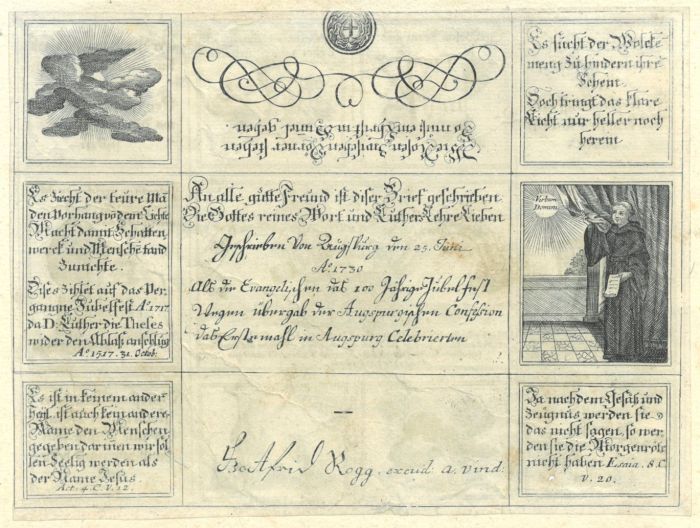 Es sucht der Wolcke
meng zu hindern ihre
Schein
Doch tringt das klare
Liecht nur heller noch
herein
Wie Rosen zwischen Dörner stehen
So muß ein Christ gehen
Es zieht der teüre Mā
den Vorhang vō dem Liechte
Macht damit Schatten
werck und Mensche tand
zunichte.
Dises zihlet auf das Ver
gangne Jubelfest Aº 1717
da D: Luther die Theses
wider den Ablaß anschlug
Aº 1517. 31. Octob:
An alle gutte Freund ist diser Brief geschrieben
Die Gottes reines Wort und Luthers Lehre Lieben
Geschrieben Von Augsburg den 25. Juni
Aº 1730
Als die Evangelischen das 100 Jährige Jubelfest
Wegen übergab der Augspurgischen Confession
das Erstemahl in Augspurg Celebrierten
Verbum
Domini
Es ist in keinem ander
heyl, ist auch kein andere
Name den Menschen
gegeben darinnen wir sol
len Seelig werden als
der Name Jesus.
Act. 4. C. V. 12.
Gottfrid Rogg. excud. a. vind.
Ja nach dem Gesätz und
Zeugnus, werden sie
das nicht sagen, so wer
den sie die Morgenröth
nicht haben Esaia. 8. C.
V. 20.